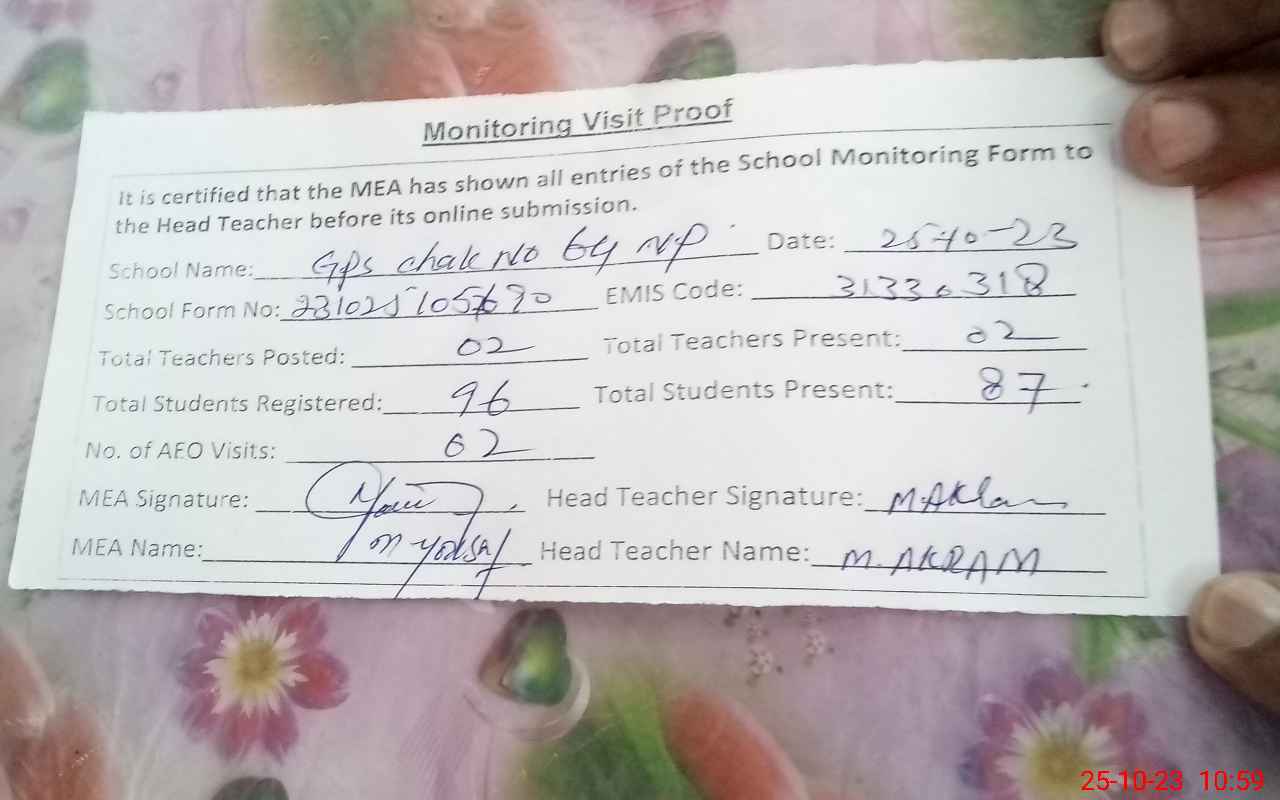 Monitoring Visit Proof
It is certified that the MEA has shown all entries of the School Monitoring Form to
the Head Teacher before its online submission.
School Name: GPS chak No 64 NP Date: 25-10-23
School Form No: EMIS Code: 31330318
Total Teachers Posted: 02 Total Teachers Present: 02
Total Students Registered: 96 Total Students Present: 87
No. of AEO Visits: 02
MEA Signature: Head Teacher Signature: M.Akram
MEA Name: M Yousaf Head Teacher Name: M. AKRAM
25-10-23 10:59